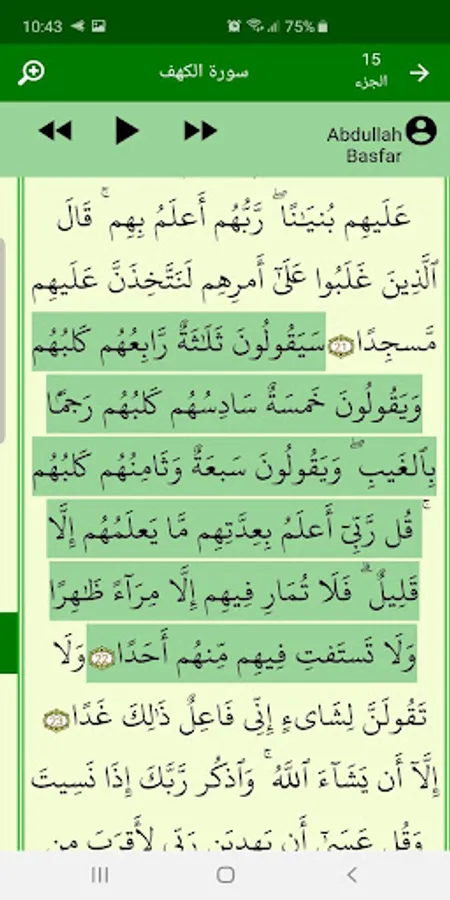 10:43
75%
سورة الكهف
15
الجزء
Abdullah
Basfar
عَلَيهِم بُنيَـٰنًاۖ رَّبُّهُم أَعلَمُ بِهِمۚ قَالَ
ٱلَّذِينَ غَلَبُوا عَلَىٰٓ أَمرِهِم لَنَتَّخِذَنَّ عَلَيهِم
مَّسجِدًا 21 سَيَقُولُونَ ثَلَـٰثَةٌ رَّابِعُهُم كَلبُهُم
وَيَقُولُونَ خَمسَةٌ سَادِسُهُم كَلبُهُم رَجمًا
بِٱلغَيبِۖ وَيَقُولُونَ سَبعَةٌ وَثَامِنُهُم كَلبُهُم
ۚ قُل رَّبِّىٓ أَعلَمُ بِعِدَّتِهِم مَّا يَعلَمُهُم إِلَّا
قَلِيلٌۗ فَلَا تُمَارِ فِيهِم إِلَّا مِرَآءً ظَـٰهِرًا
وَلَا تَستَفتِ فِيهِم مِّنهُم أَحَدًا 22 وَلَا
تَقُولَنَّ لِشَاىءٍ إِنِّى فَاعِلٌ ذَٰلِكَ غَدًا 23
إِلَّآ أَن يَشَآءَ ٱللَّهُۚ وَٱذكُر رَّبَّكَ إِذَا نَسِيتَ
وَقُل عَسَىٰٓ أَن يَهدِيَنِ رَبِّى لِأَقرَبَ مِن